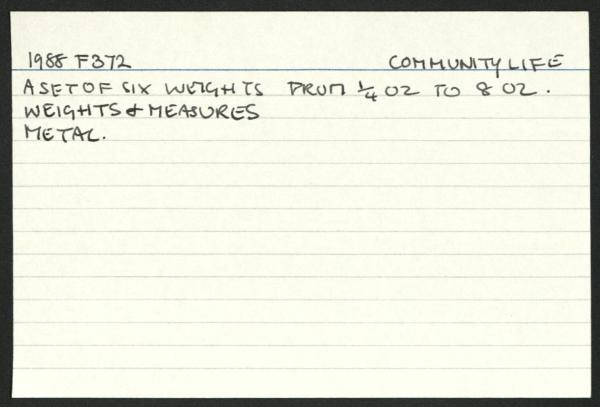 1988 F372 COMMUNITY LIFE
A SET OF SIX WEIGHTS FROM ¼ OZ TO 8 OZ.
WEIGHTS & MEASURES
METAL.